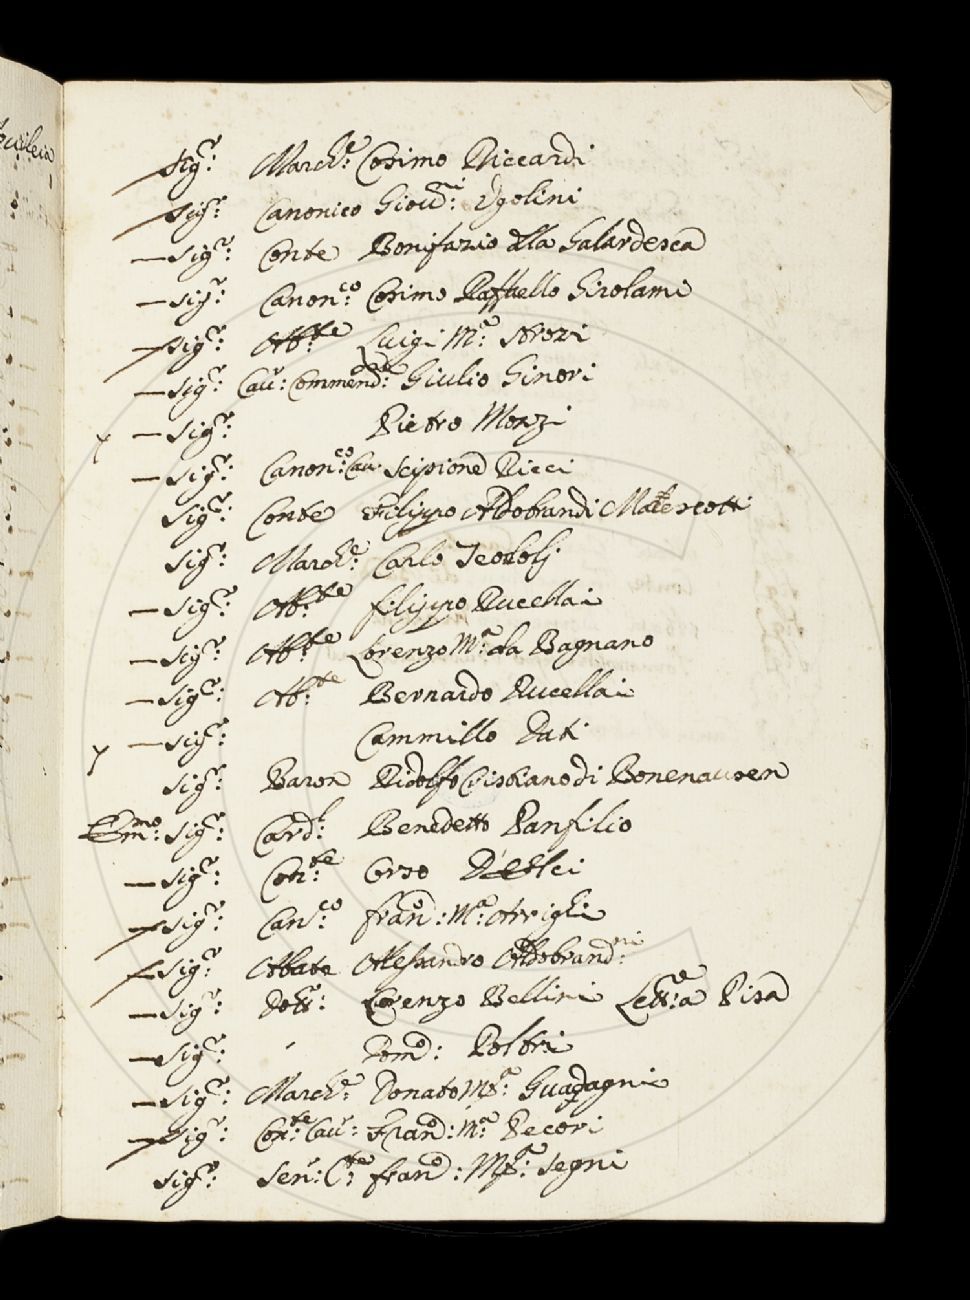 Sig.r: March.e: Cosimo Riccardi
Sig.r: Canonico Giov.ni: Ugolini
— Sig.r: Conte Bonifazio della Galardesca
— Sig.r: Canon.co: Cosimo Raffaello Girolami
Sig.r: Ab.te: Luigi M.a: Strozi
— Sig.r: Cav.r: Commend.re: Giulio Ginori
x — Sig.r: Pietro Monzi
— Sig.r: Canon.co: Cav. Scipione Ricci
Sig.r: Conte Filippo Aldobrandi Marescotti
Sig.r: March.e: Carlo Teodolj
— Sig.r: Ab.te: Filippo Rucellai
— Sig.r: Ab.te: Lorenzo M.a: da Bagnano
— Sig.r: Ab.te: Bernardo Rucellai
x — Sig.r: Cammillo Dati
Sig.r: Baron Ridolfo Cristiano di Bonenausen
Em.mo: Sig.r: Card.l: Benedetto Panfilio
— Sig.r: Con.te: Corso D'Elci
Sig.r: Can.co: Fran.o: M.a: Arrighi
Sig.r: Abate Allessandro Aldobrand.ni:
— Sig.r: Dott.r: Lorenzo Bellini Lett.e: a Pisa
— Sig.r: Dom.o: Poltri
— Sig.r: March.e: Donato M.a: Guadagni
Sig.r: Con.te: Cav.r: Fran.o: M.a: Pecori
Sig.r: Sen.r: C.te: Fran.o: M.a: Segni